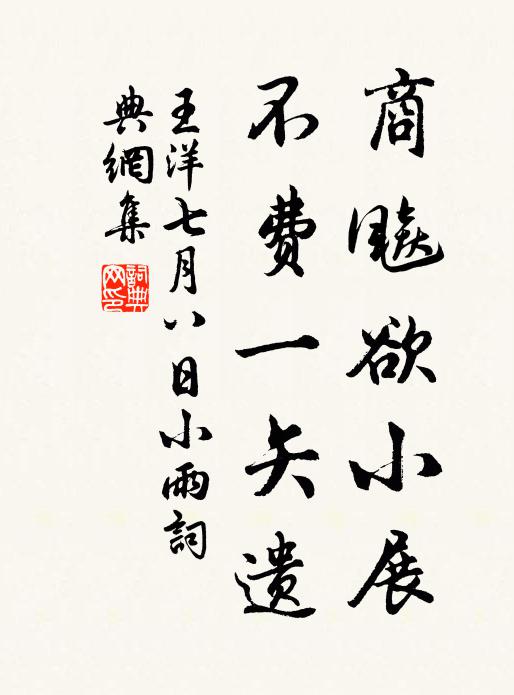 商飈欲小展
不費一矢遺
王洋七月八日小雨詞
典網集
詞典網印